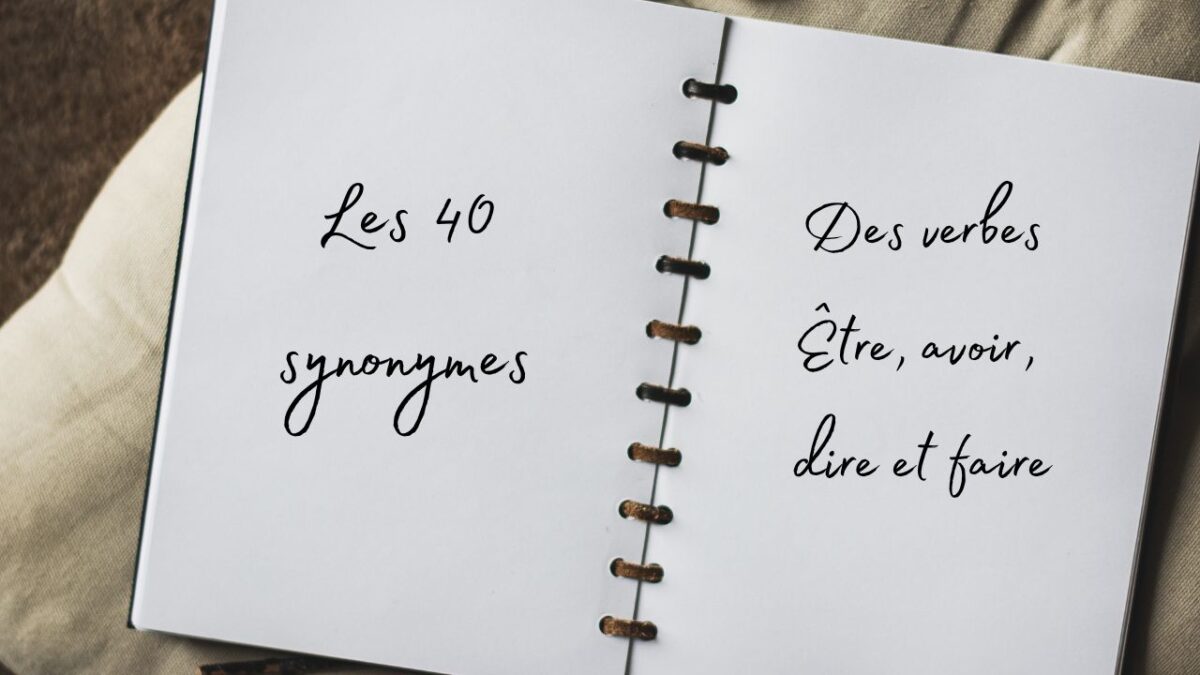 Les 40
synonymes
Des verbes
Être, avoir,
dire et faire